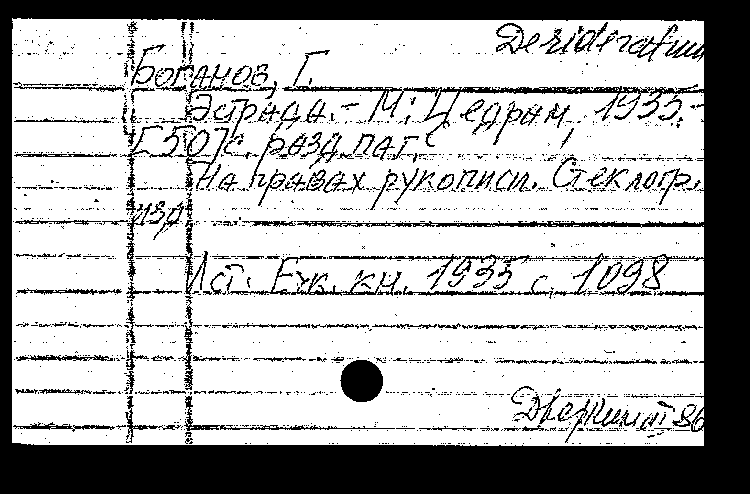 Desideratum
Боганов, Г.
Эстрада. - М: Цедрам, 1935.-
[50]с. разд. паг.
На правах рукописи. Стеклогр.
изд
Ист. Еж. кн. 1935 с. 1098
VI 86